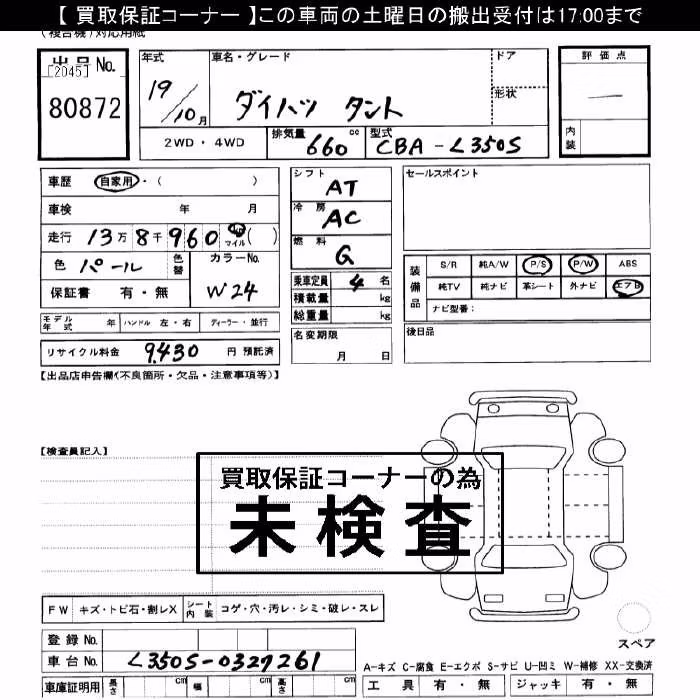 【 買取保証コーナー 】この車両の土曜日の搬出受付は17:00まで
(複合機)対応用紙
出品No.
[2045]
80872
年式 19/10月
車名・グレード ダイハツ タント
ドア
形状
評価点
—
内装
2WD・4WD
排気量 660 cc
型式 CBA-L350S
車歴 自家用・( )
車検 年 月
走行 13万8千960 km マイル ( )
色 パール 色替 カラーNo. W24
保証書 有・無
モデル年式 年 ハンドル 左・右 ディーラー・並行
リサイクル料金 9,430 円 預託済
シフト AT
冷房 AC
燃料 G
乗車定員 4名
積載量 kg
総重量 kg
名変期限 月 日
セールスポイント
装備品
S/R 純A/W P/S P/W ABS
純TV 純ナビ 革シート 外ナビ エアB
ナビ型番:
後日品
【出品店申告欄(不良箇所・欠品・注意事項等)】
【検査員記入】
買取保証コーナーの為
未検査
FW キズ・トビ石・割レX シート内装 コゲ・穴・汚レ・シミ・破レ・スレ
登録No.
車台No. L350S-0327261
車庫証明用 長さ cm 幅 cm 高さ cm
スペア
A-キズ C-腐食 E-エクボ S-サビ U-凹ミ W-補修 XX-交換済
工具 有・無 ジャッキ 有・無